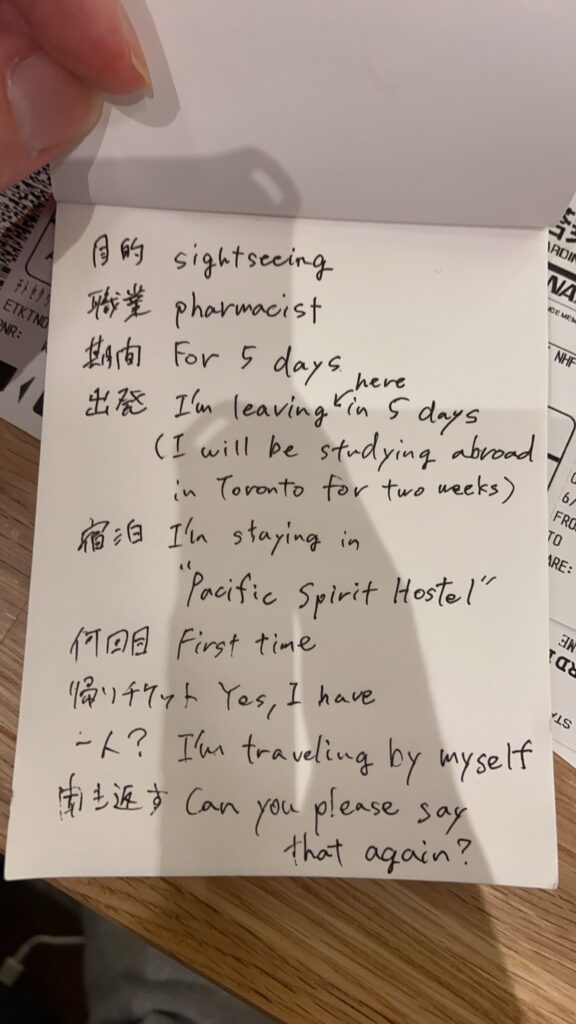 目的 sightseeing
職業 pharmacist
期間 For 5 days
出発 I'm leaving here in 5 days
(I will be studying abroad
in Toronto for two weeks)
宿泊 I'm staying in
"Pacific Spirit Hostel"
何回目 First time
帰りチケット Yes, I have
一人? I'm traveling by myself
聞き返す Can you please say
that again?
ETKTNO
PNR:
NHF
FRO
TO
ARE: